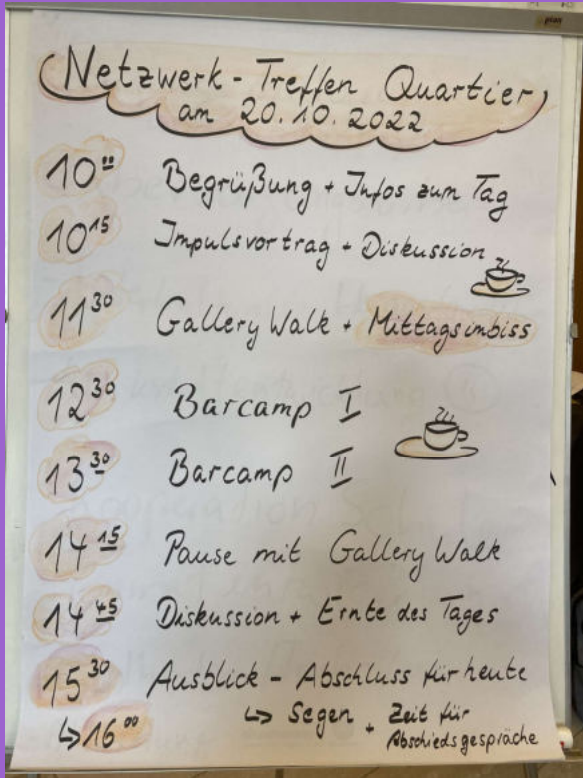 Netzwerk - Treffen Quartier
am 20.10.2022
10⁰⁰ Begrüßung + Infos zum Tag
10¹⁵ Impulsvortrag + Diskussion
11³⁰ Gallery Walk + Mittagsimbiss
12³⁰ Barcamp I
13³⁰ Barcamp II
14¹⁵ Pause mit Gallery Walk
14⁴⁵ Diskussion + Ernte des Tages
15³⁰ Ausblick - Abschluss für heute
↳ 16⁰⁰ ↳ Segen + Zeit für
Abschiedsgespräche